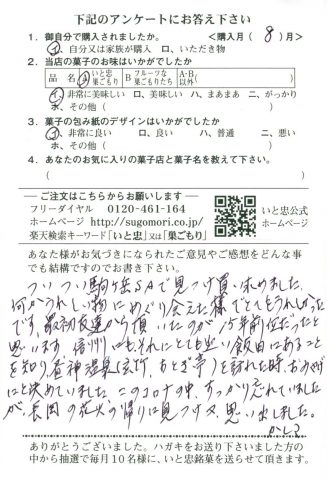 下記のアンケートにお答え下さい
1．御自分で購入されましたか。 ＜購入月（8）月＞
イ、自分又は家族が購入 ロ、いただき物
2．当店の菓子のお味はいかがでしたか
品名 A いと忠巣ごもり B フルーツな巣ごもりたち A・B以外（ ）
イ、非常に美味しい ロ、美味しい ハ、まあまあ ニ、がっかり
ホ、その他（ ）
3．菓子の包み紙のデザインはいかがでしたか
イ、非常に良い ロ、良い ハ、普通 ニ、悪い
ホ、その他（ ）
4．あなたのお気に入りの菓子店と菓子名を教えて下さい。
（ ）
―ご注文はこちらからお願いします―
フリーダイヤル 0120-461-164
ホームページ http://sugomori.co.jp/
楽天検索キーワード「いと忠」又は「巣ごもり」
いと忠公式
ホームページ
あなた様がお気づきになられたご意見やご感想をどんな事
でも結構ですのでお書き下さい。
ついつい駒ヶ岳SAで見つけ買い求めました。
何かうれしい物にめぐり会えた様でとてもうれしかった
です。最初友達から頂いたのが15年前位だったと
思います。信州にも、それにとても近い飯田にあること
を知り昼神温泉を訪れた時、おみやげ
にと決めていました。このコロナの中、すっかり忘れていました
が長岡の花火の帰りに見つけて、思い出しました。
かしこ
ありがとうございました。ハガキをお送り下さいました方
の中から抽選で毎月10名様に、いと忠銘菓を送らせて頂きます。